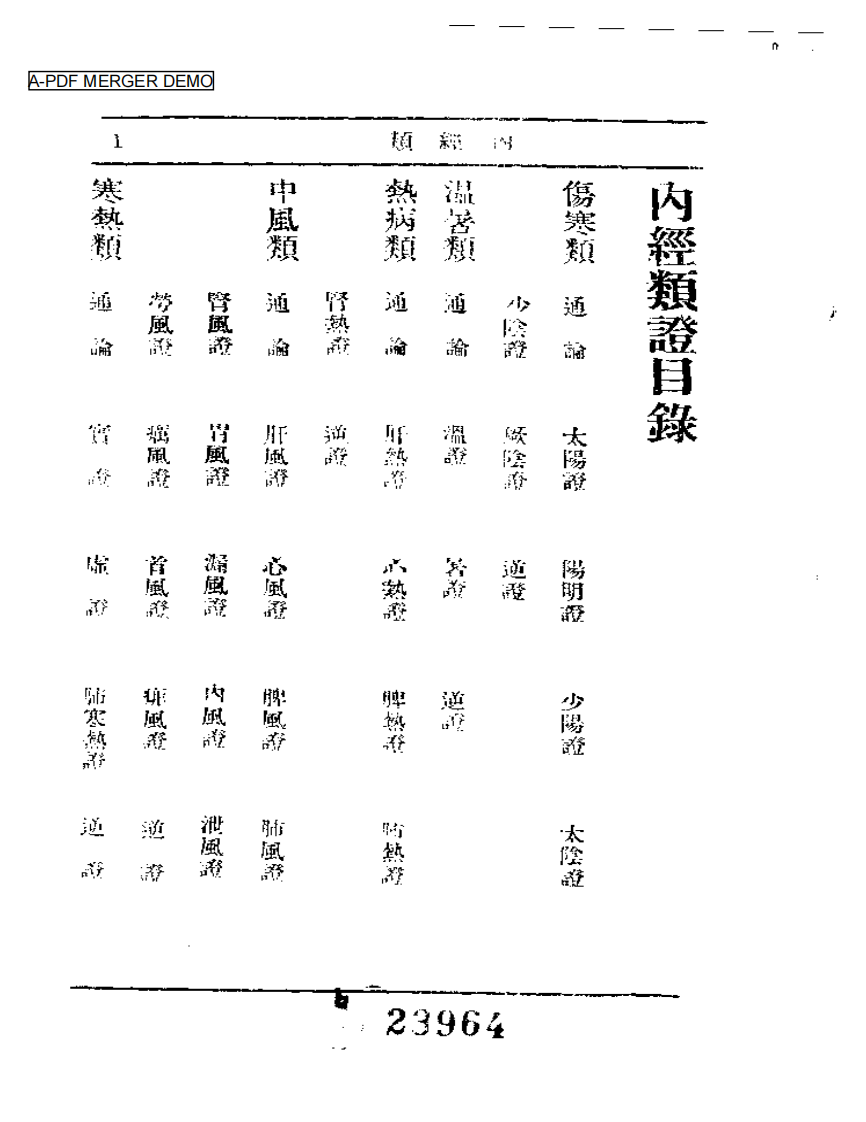 A-PDF MERGER DEMO
內經類 1
內經類證目錄
傷寒類 通論 太陽證 陽明證 少陽證 太陰證
少陰證 厥陰證 逆證
溫暑類 通論 溫證 暑證 逆證
熱病類 通論 肝熱證 心熱證 脾熱證 肺熱證
腎熱證 逆證
中風類 通論 肝風證 心風證 脾風證 肺風證
腎風證 胃風證 漏風證 內風證 泄風證
勞風證 癘風證 首風證 痱風證 逆證
寒熱類 通論 實證 虛證 肺寒熱證 逆證
23964